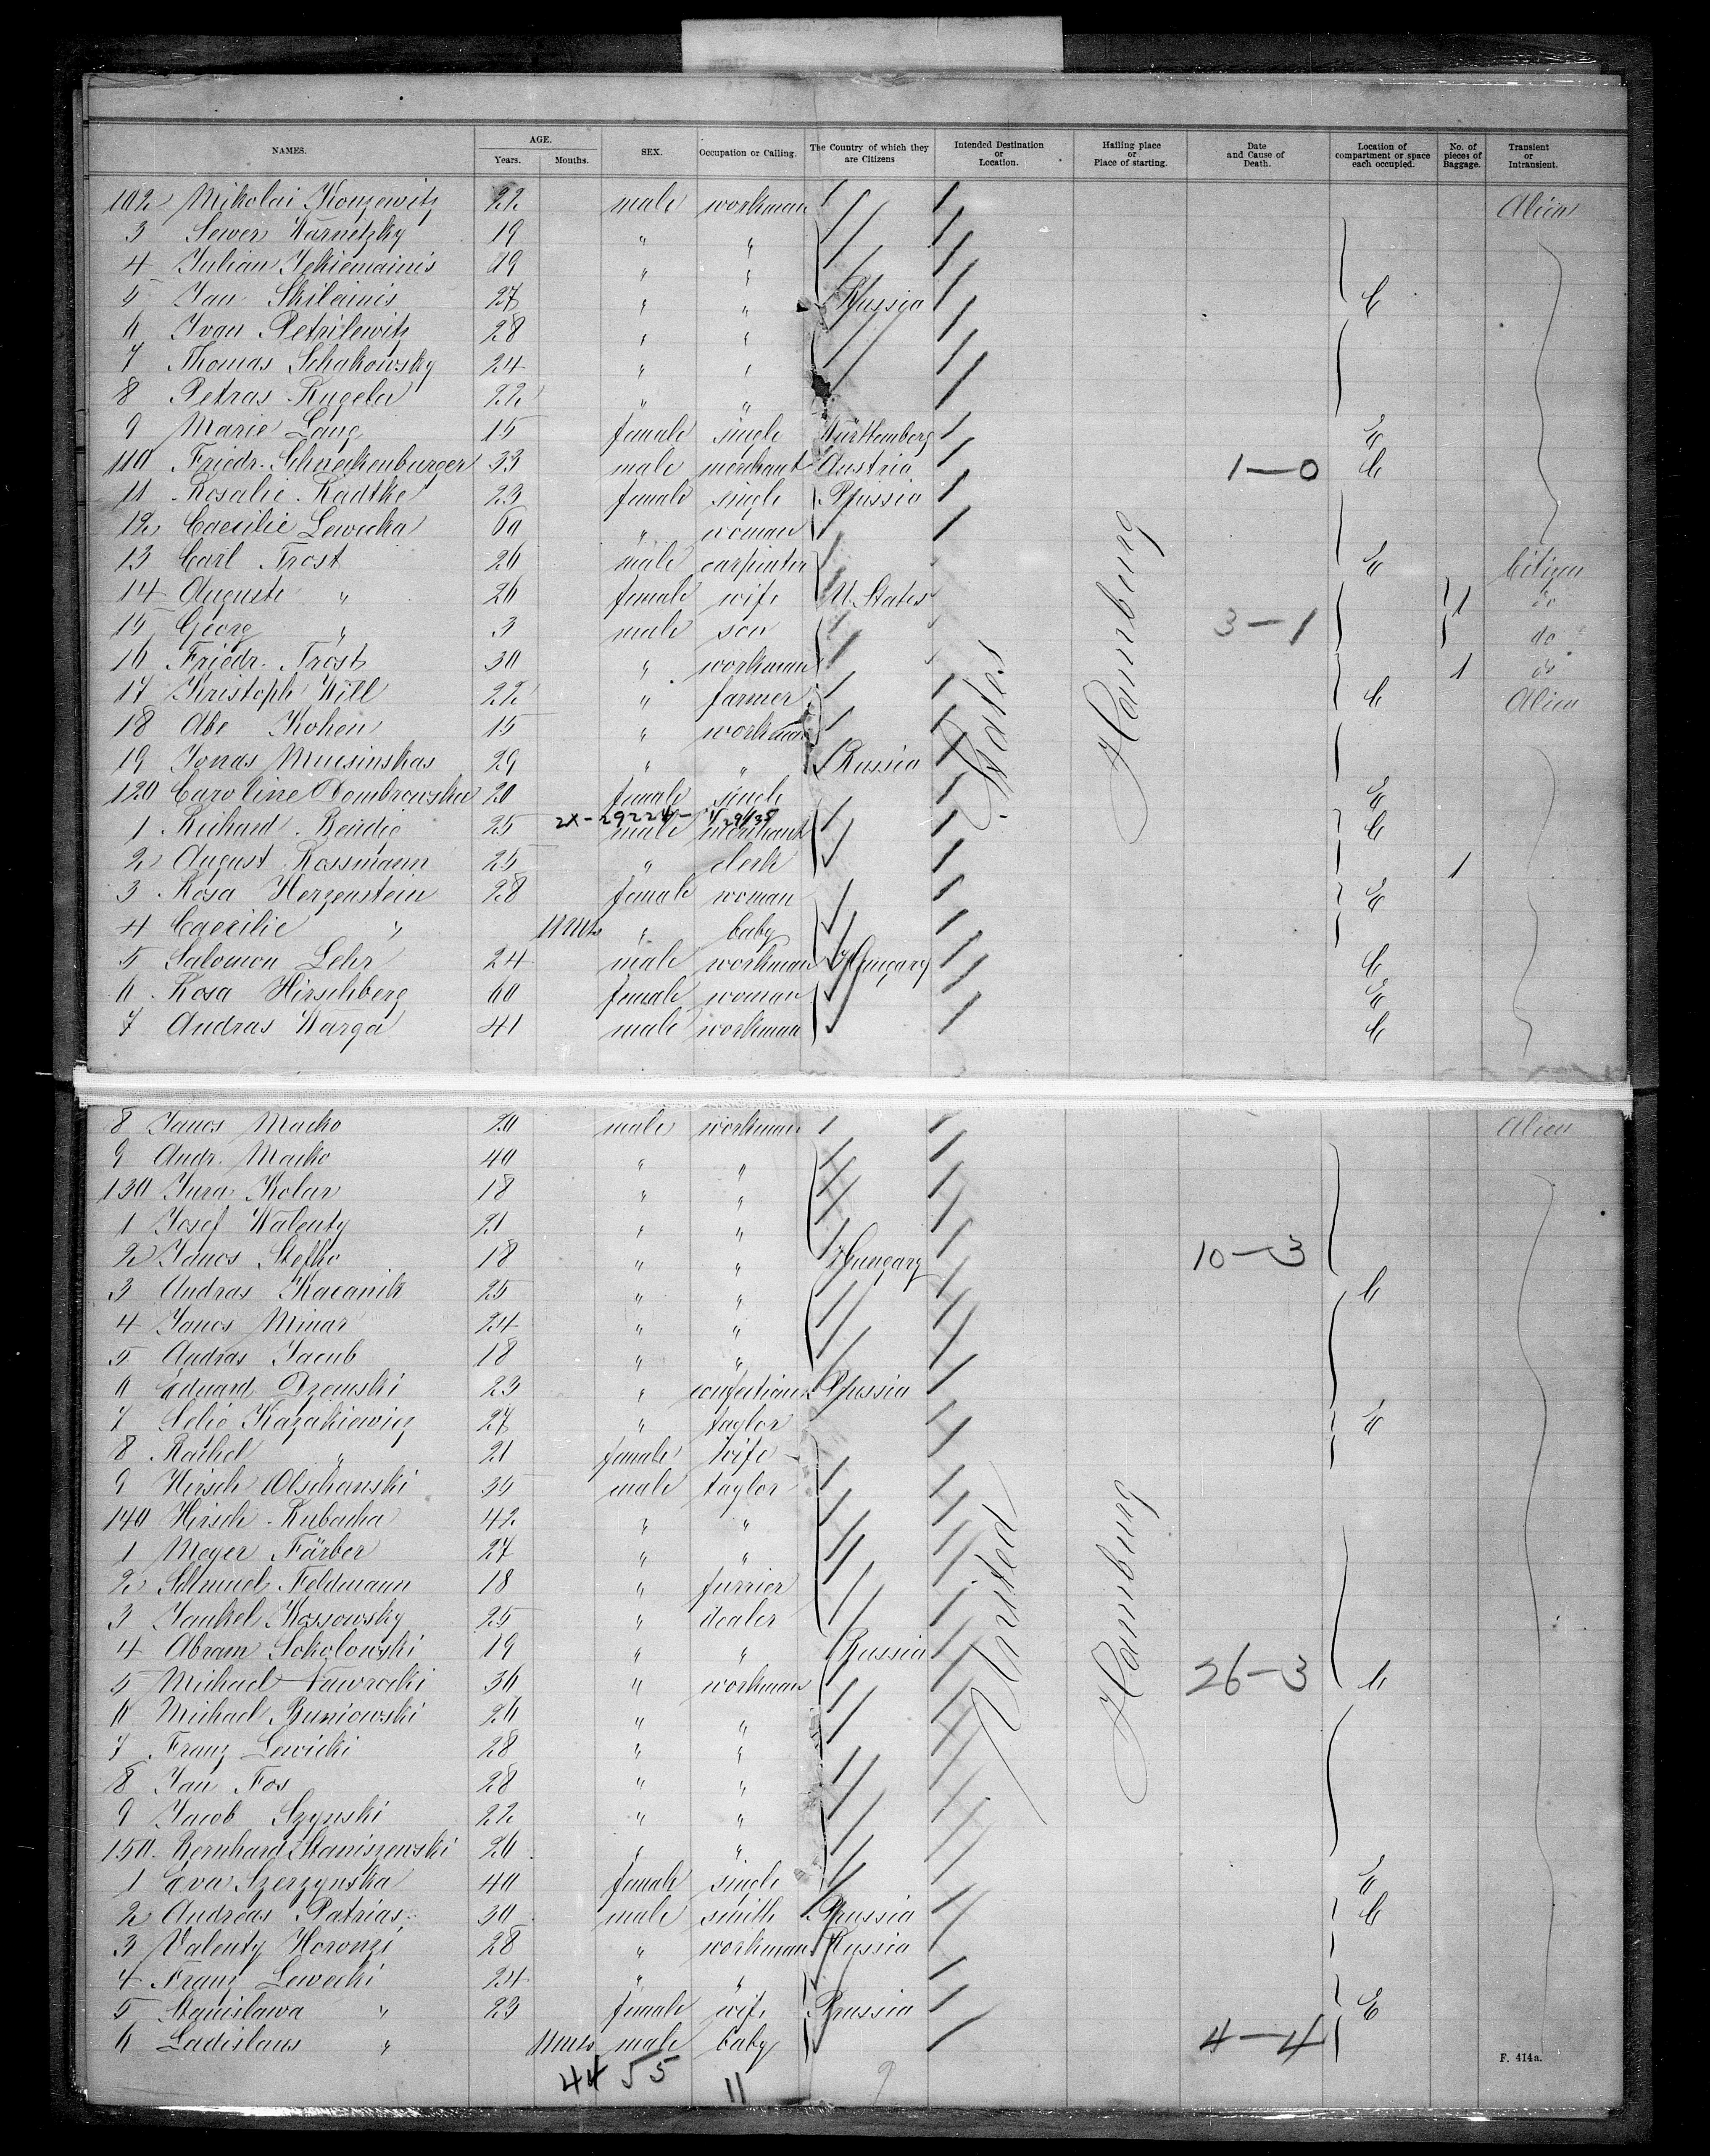 NAMES. AGE. Years. Months. SEX. Occupation or Calling. The Country of which they are Citizens Intended Destination or Location. Hailing place or Place of starting. Date and Cause of Death. Location of compartment or space each occupied. No. of pieces of Baggage. Transient or Intransient.
102 Mikolai 22 male workman Alien
3 Sewer Warnetzky 19 " "
4 Julian 19 " "
5 Jan Skilainis 27 " " Russia C
6 Ivan Petrilewitz 28 " "
7 Thomas Schakowsky 24 " "
8 Petras Kugela 22 " "
9 Marie Lang 15 female single Württemberg E
110 Friedr. Schneckenburger 33 male merchant Austria 1-0 C
11 Rosalie Radtke 23 female single Prussia
12 Caecilie Lewicka 60 " woman
13 Carl Trost 26 male carpinter E Citizen
14 Auguste " 26 female wife U. States 1 do
15 Georg " 3 male son 3-1 do
16 Friedr. Trost 30 " workman 1 do
17 Christoph Will 22 " farmer C Alien
18 Abe Kohen 15 " workman
19 Jonas Muisinskas 29 " " Russia
120 Caroline Dombrowska 20 female single E
2X-29224-
1 Richard Bendig 25 male merchant C
2 August Rossmann 25 " clerk 1
3 Rosa Herzenstein 28 female woman E
4 Caecilie " 11 Mts " baby
5 Salomon Lehr 24 male workman Hungary C
6 Rosa Hirschberg 60 female woman E
7 Andras Warga 41 male workman C
States
Hamburg
8 Janos Macko 20 male workman Alien
9 Andr. Macko 40 " "
130 Jura Kolar 18 " "
1 Josef Walenty 21 " "
2 Janos Stefko 18 " " Hungary 10-3
3 Andras Kacanik 25 " " C
4 Janos Minar 24 " "
5 Andras Jacub 18 " "
6 Eduard Dzemski 23 " confectioner Prussia
7 Selie Kazakiewicz 27 " taylor E
8 Rachel " 21 female wife
9 Hirsch Olschanski 35 male taylor
140 Hirsch Rubacha 42 " "
1 Meyer Färber 27 " "
2 Schmuel Feldmann 18 " furrier
3 Jankel Kossowsky 25 " dealer
4 Abram Sokolowski 19 " " Russia
5 Michael Nawrocki 36 " workman 26-3 C
6 Michael Buniowski 26 " "
7 Franz Lewicki 28 " "
8 Jan Fos 28 " "
9 Jacob Szynski 22 " "
150 Bernhard Staniszewski 26 " "
1 Eva Szerzynska 40 female single E
2 Andreas Patrias 30 male smith Prussia C
3 Valenty Horonzi 28 " workman Russia
4 Franz Lewecki 24 " "
5 Stanislawa " 23 female wife Prussia E
6 Ladislaus " 11 Mts male baby 4-4
United
Hamburg
F. 414a.
44 55 11 9